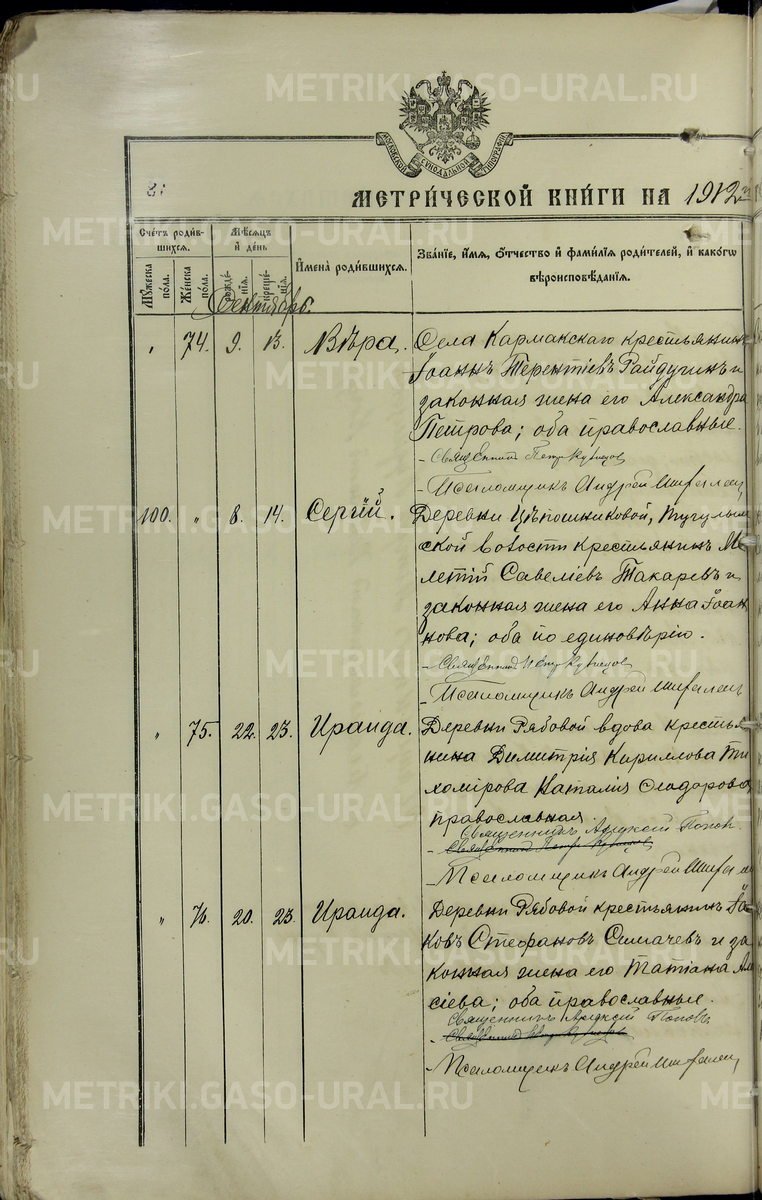 МОСКОВСКОЙ СУНОДАЛЬНОЙ ТИПОГРАФІИ
МЕТРИ́ЧЕСКОЙ КНИ́ГИ НА 1912
Сче́тъ роди́вшихся.
Мꙋ́жеска по́ла.
Же́нска по́ла.
Мѣ́сяцъ и҆ де́нь
рожде́нїя.
креще́нїя.
И҆мена̀ роди́вшихся.
Зва́нїе, и҆́мя, ѻ҆́тчество и҆ фами́лїя роди́телей, и҆ како́гѡ
вѣроисповѣ́данїя.
Сентябрь.
„ 74. 9. 13. Вѣра. Села Кармакскаго крестьянинъ
Іоаннъ Терентіевъ Райдугинъ и
законная жена его Александра
Петрова; оба православные.
Священникъ Петръ Кузнецов
Псаломщикъ Андрей
100. „ 8. 14. Сергій. Деревни
ской волости крестьянинъ Ме
летій Савеліевъ Такаревъ и
законная жена его Анна Іоан
нова; оба по единовѣрію.
Священникъ Петръ Кузнецов
Псаломщикъ Андрей
„ 75. 22. 23. Ираида. Деревни Рябовой вдова крестья
нина Димитрія Кириллова Ти
хомірова Наталія Ѳеодорова
православная.
Священникъ Аркадій Поповъ.
Священникъ Петръ Кузнецов
Псаломщикъ Андрей
„ 76. 20. 23. Ираида. Деревни Рябовой крестьянинъ Іа
ковъ Стефановъ Симачевъ и за
конная жена его Татіана Але
сіева; оба православные.
Священникъ Аркадій Поповъ
Псаломщикъ Андрей
METRIKI.GASO-URAL.RU